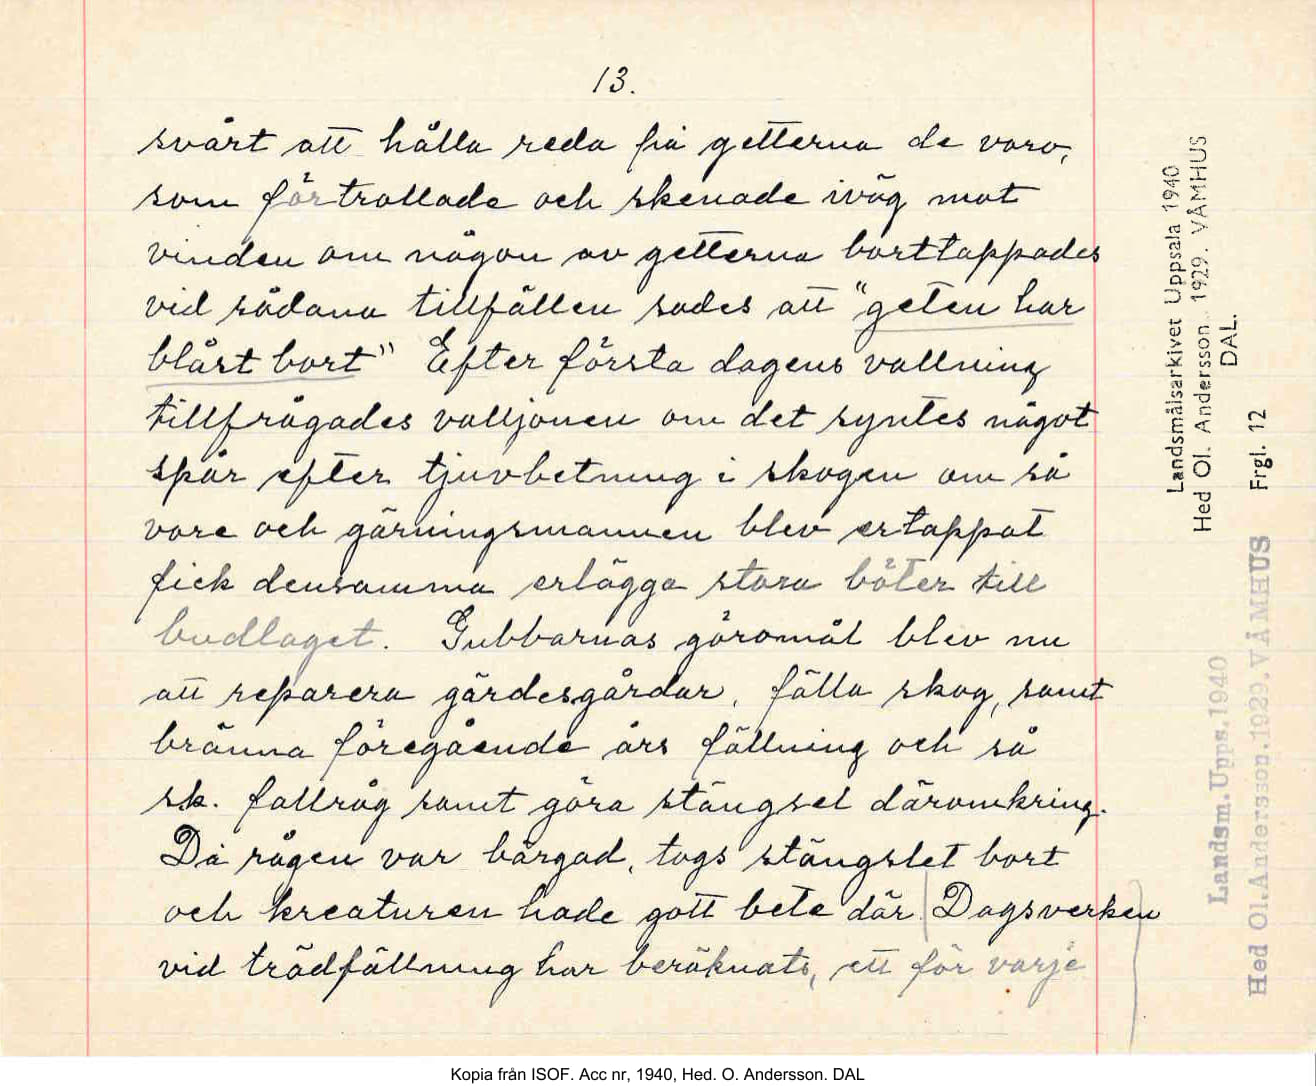 13.
svårt att hålla reda på getterna de voro,
som förtrollade och skenade iväg mot
vinden om någon av getterna borttappades
vid sådana tillfällen sades att "geten har
blåst bort" Efter första dagens vallning
tillfrågades valljonen om det syntes något
spår efter tjuvbetning i skogen om så
vore och gärningsmannen blev ertappat
fick densamma erlägga stora böter till
budlaget. Gubbarnas göromål blev nu
att reparera gärdesgårdar, fälla skog, samt
bränna föregående års fällning och så
sk. fallråg samt göra stängsel däromkring.
Då rågen var bärgad, togs stängslet bort
och kreaturen hade gott bete där. Dagsverken
vid trädfällning har beräknats, ett för varje
Landsmålsarkivet Uppsala 1940
Hed Ol. Andersson. 1929. VÅMHUS
DAL.
Frgl. 12
Landsm.Upps.1940
Hed Ol.Andersson.1929.VÅMHUS
Kopia från ISOF. Acc nr, 1940, Hed. O. Andersson. DAL